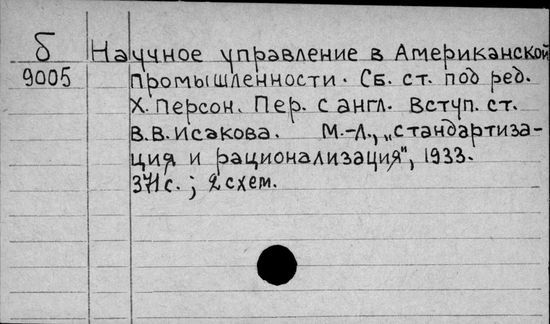 Б Научное управление в Американской
9005 промышленности. Сб. ст. под ред.
Х. Персон. Пер. с англ. Вступ. ст.
В.В. Исакова. М.-Л., „Стандартиза-
ция и рационализация", 1933.
371 с.; 2 схем.